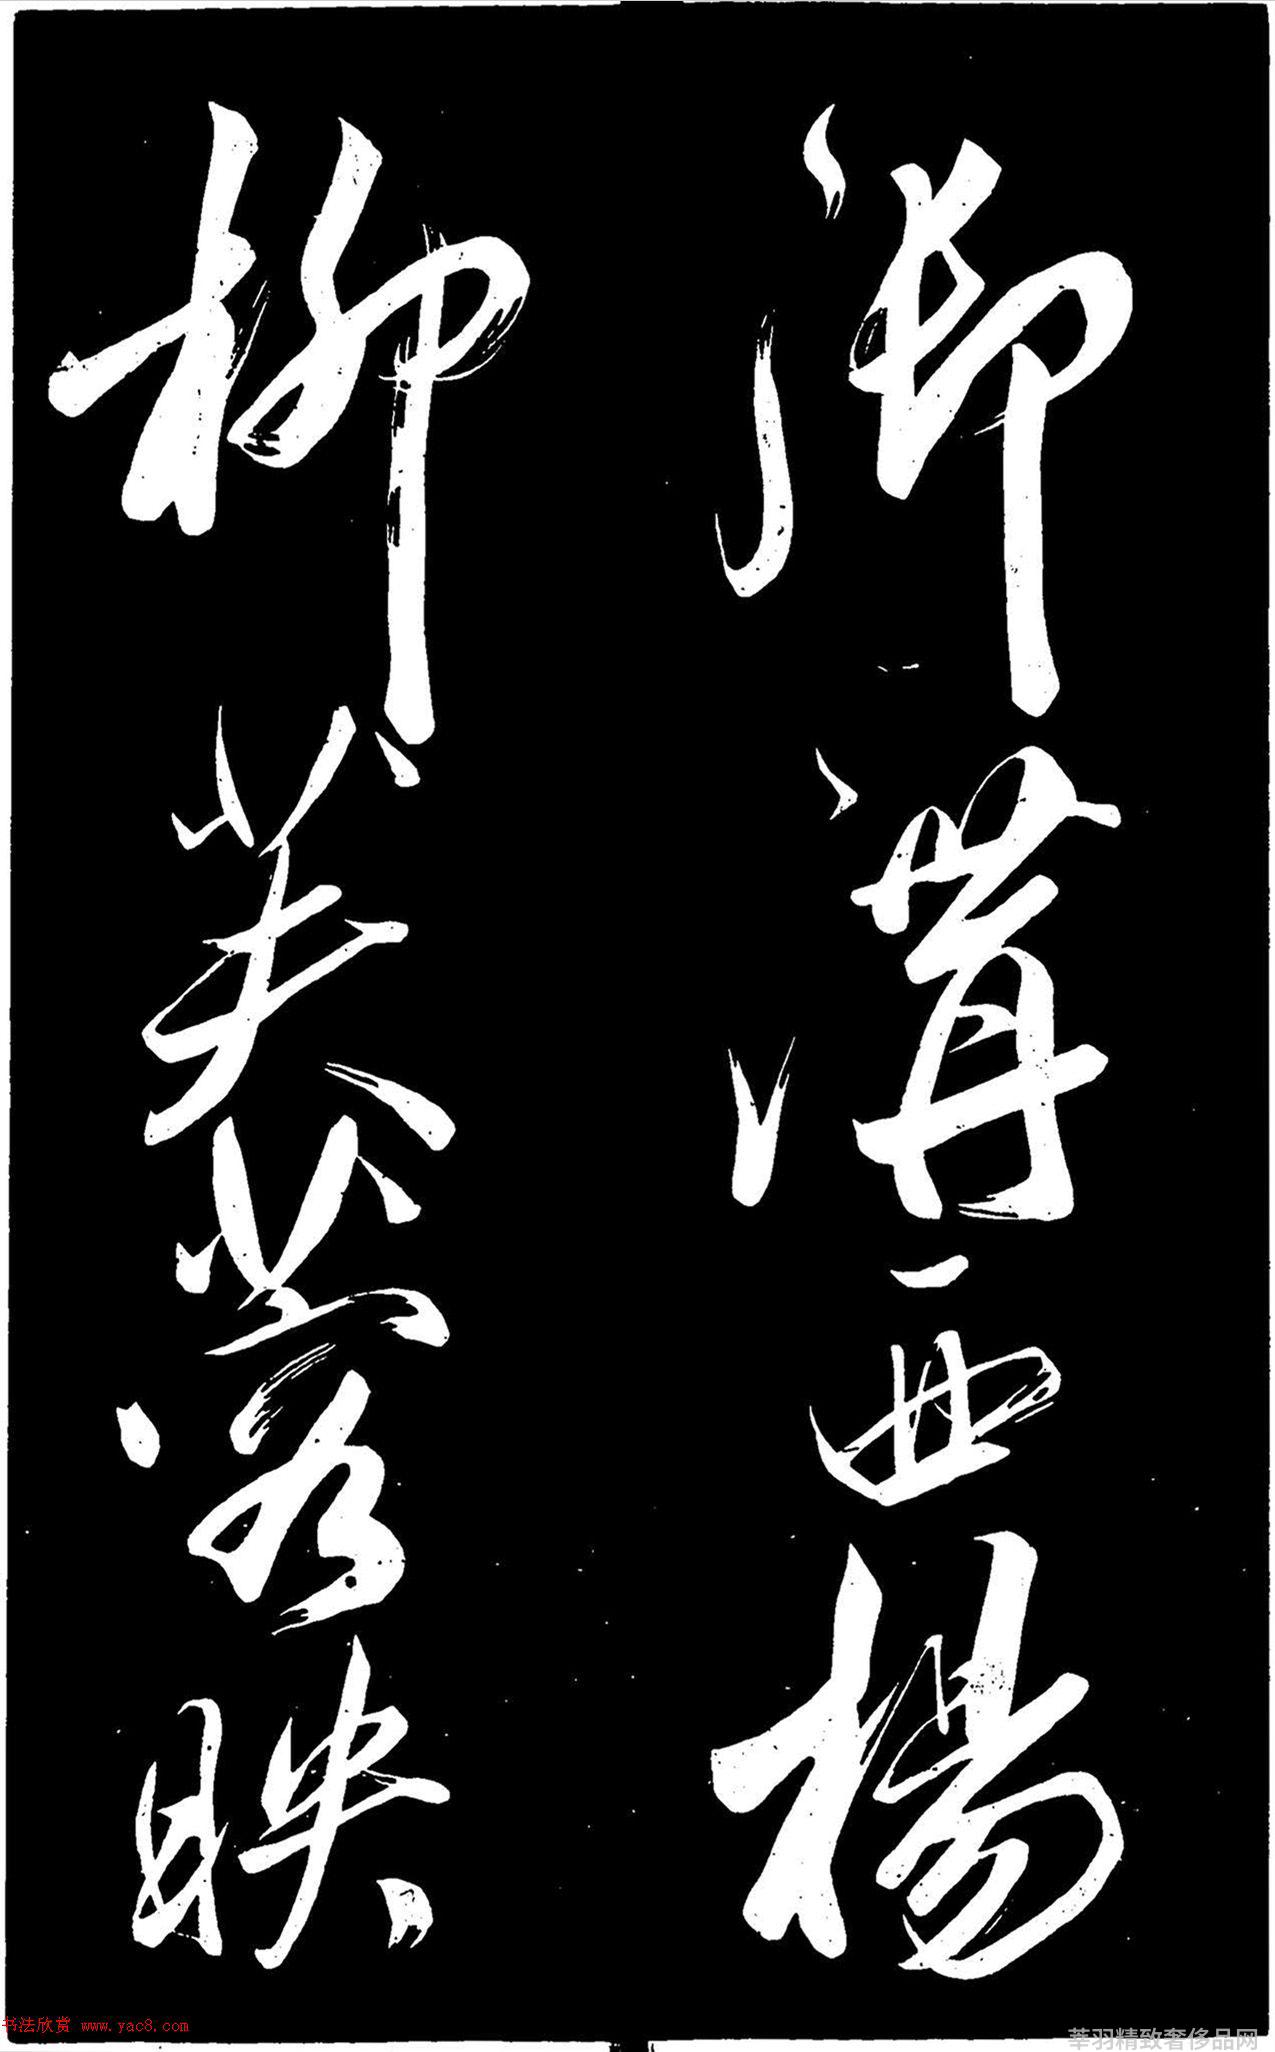 御溝西楊
柳芙蓉映
书法欣赏 www.yac8.com
莘羽精致奢侈品网